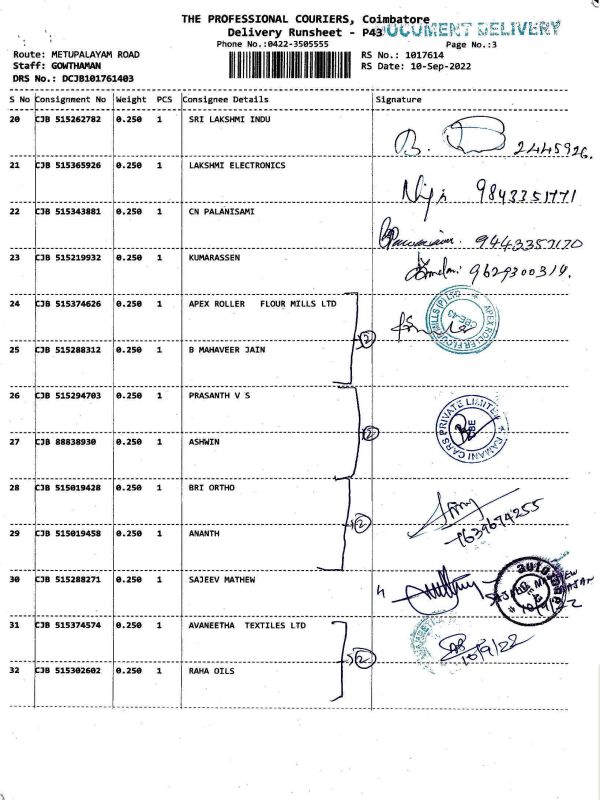 THE PROFESSIONAL COURIERS, Coimbatore
Delivery Runsheet - P43
DOCUMENT DELIVERY
Phone No.:0422-3505555
Page No.:3
Route: METUPALAYAM ROAD
RS No.: 1017614
Staff: GOWTHAMAN
RS Date: 10-Sep-2022
DRS No.: DCJB101761403
S No Consignment No Weight PCS Consignee Details Signature
20 CJB 515262782 0.250 1 SRI LAKSHMI INDU
B. 2445926.
21 CJB 515365926 0.250 1 LAKSHMI ELECTRONICS
9843351771
22 CJB 515343881 0.250 1 CN PALANISAMI
9443357170
23 CJB 515219932 0.250 1 KUMARASSEN
9629300314.
24 CJB 515374626 0.250 1 APEX ROLLER FLOUR MILLS LTD
APEX ROLLER FLOUR MILLS (P) LTD
CBE-43
2
25 CJB 515288312 0.250 1 B MAHAVEER JAIN
26 CJB 515294703 0.250 1 PRASANTH V S
RAMANI CARS PRIVATE LIMITED
CBE
2
27 CJB 88838930 0.250 1 ASHWIN
28 CJB 515019428 0.250 1 BRI ORTHO
2
9639674255
29 CJB 515019458 0.250 1 ANANTH
30 CJB 515288271 0.250 1 SAJEEV MATHEW
auto
10/9/22
31 CJB 515374574 0.250 1 AVANEETHA TEXTILES LTD
2
10/9/22
32 CJB 515302602 0.250 1 RAHA OILS